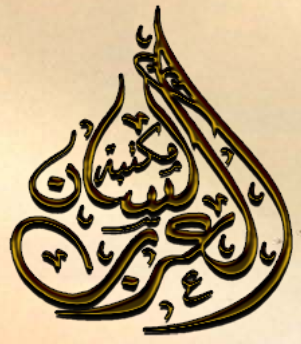 مكتبة
لسان
العرب